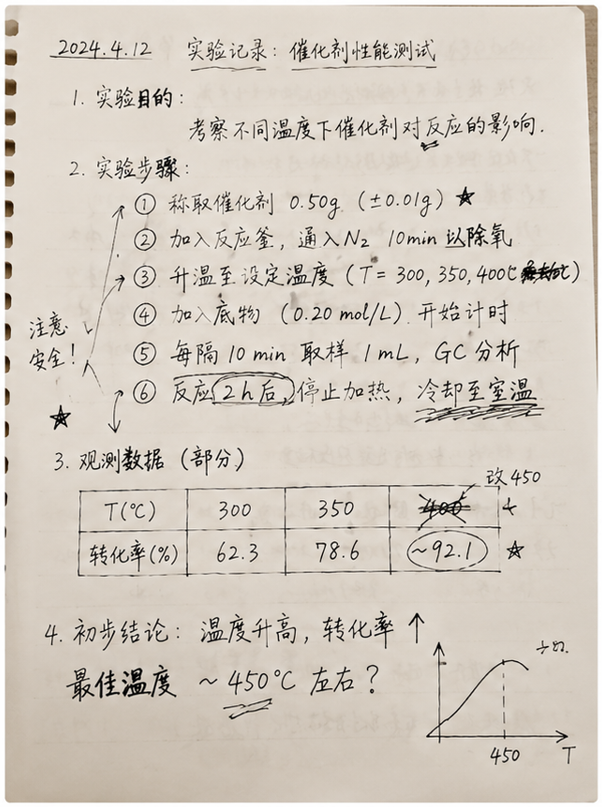 2024.4.12 实验记录：催化剂性能测试
1. 实验目的：
考察不同温度下催化剂对反应的影响.
2. 实验步骤：
① 称取催化剂 0.50g (±0.01g) ☆
② 加入反应釜，通入N₂ 10min 以除氧
③ 升温至设定温度 (T = 300, 350, 400℃)
④ 加入底物 (0.20 mol/L) 开始计时
⑤ 每隔 10 min 取样 1mL, GC 分析
⑥ 反应 2h后, 停止加热，冷却至室温
注意
安全！
☆
3. 观测数据 (部分)
改 450
T(℃) 300 350 400
转化率(%) 62.3 78.6 ~92.1 ☆
4. 初步结论：温度升高，转化率 ↑
最佳温度 ~ 450℃ 左右？
450 T